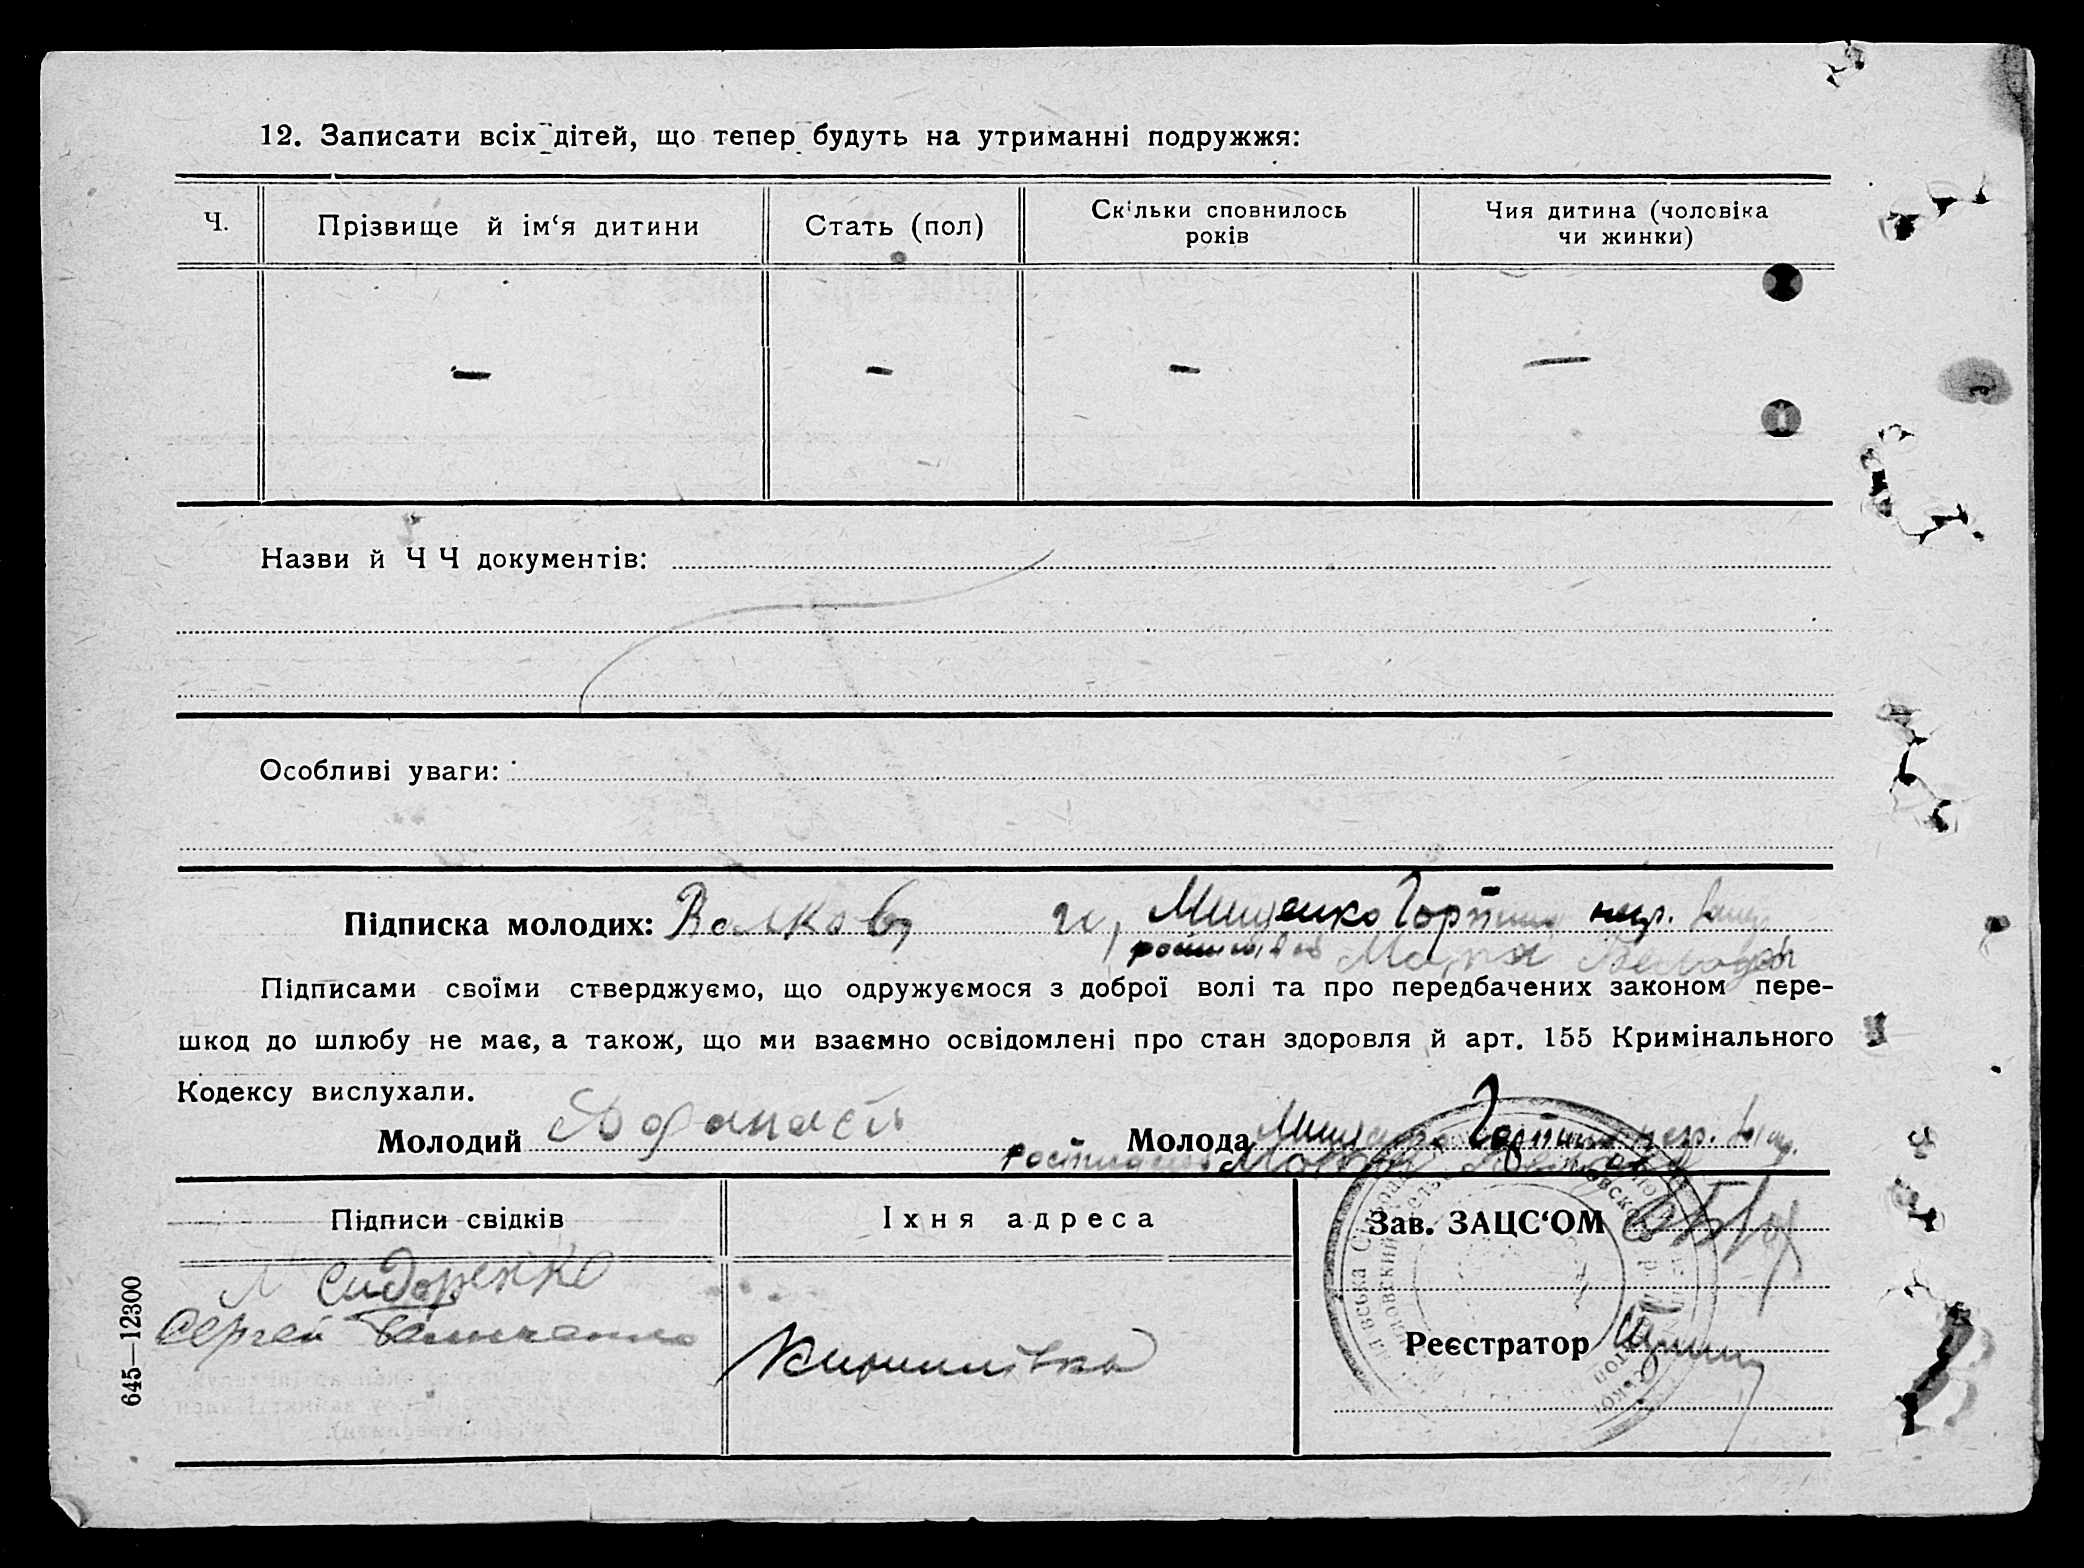 12. Записати всіх дітей, що тепер будуть на утриманні подружжя:
Ч.
Прізвище й ім‘я дитини
Стать (пол)
Скільки сповнилось років
Чия дитина (чоловіка чи жинки)
— — — —
Назви й Ч Ч документів:
Особливі уваги:
Підписка молодих: Волков и, Мищенко Горпина
Мотя
Підписами своїми стверджуємо, що одружуємося з доброї волі та про передбачених законом пере-
шкод до шлюбу не має, а також, що ми взаємно освідомлені про стан здоровля й арт. 155 Кримінального
Кодексу вислухали.
Молодий Афанасій Молода Мищенко Горпина
Підписи свідків
Їхня адреса
Зав. ЗАЦС‘ОМ
Сидоренко
Сергей
Реєстратор
645—12300